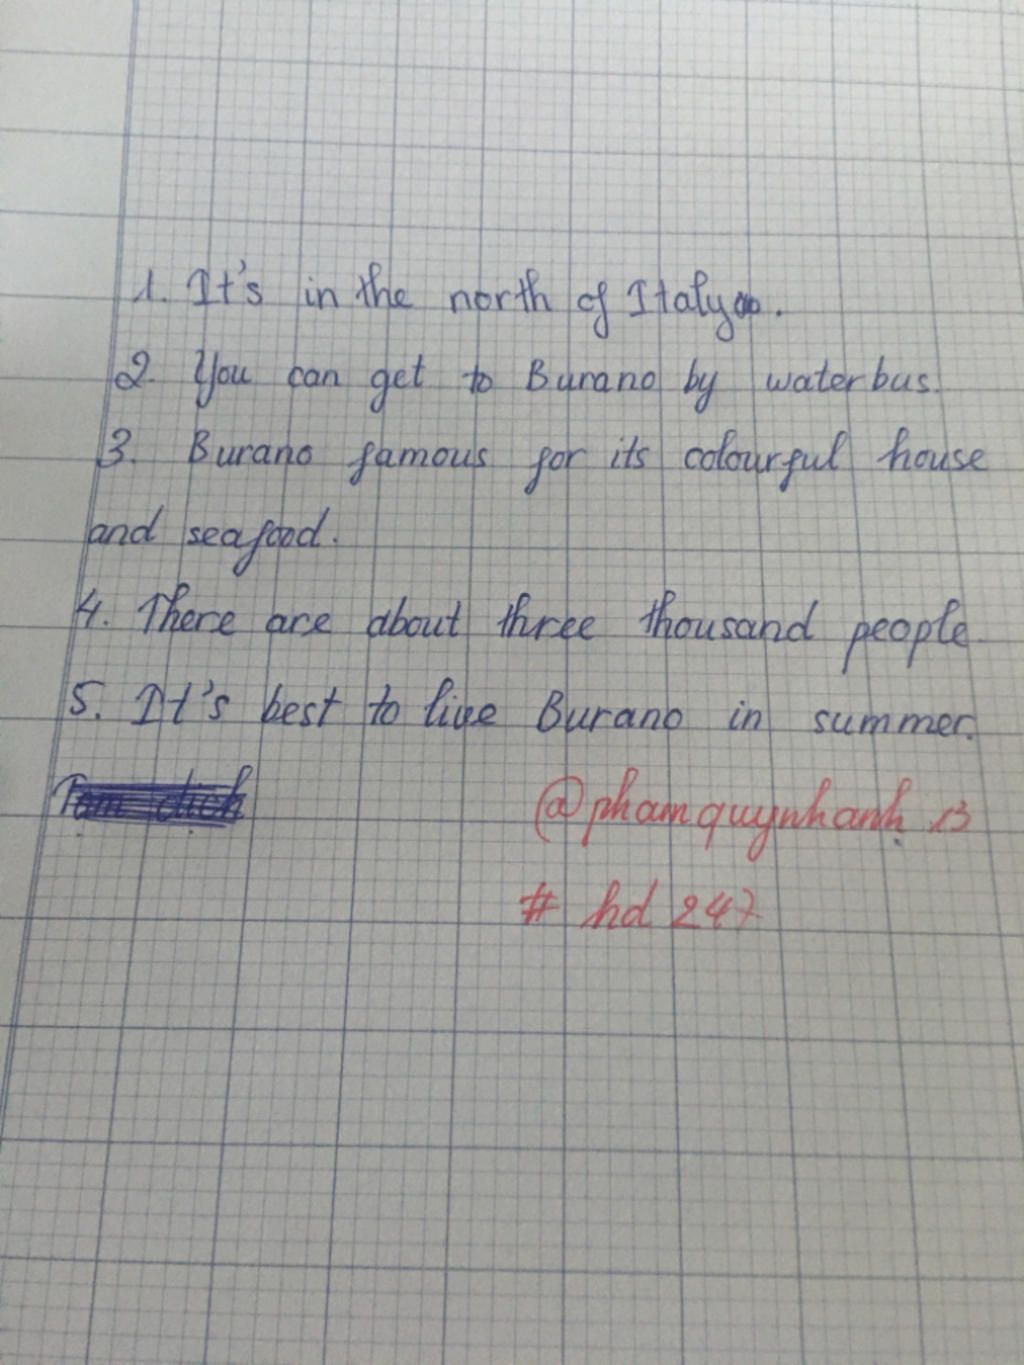 1. It's in the north of Italy.
2. You can get to Burano by water bus.
3. Burano famous for its colourful house
and seafood.
4. There are about three thousand people
5. It's best to live Burano in summer.
@phamquynhanh
# hd 247